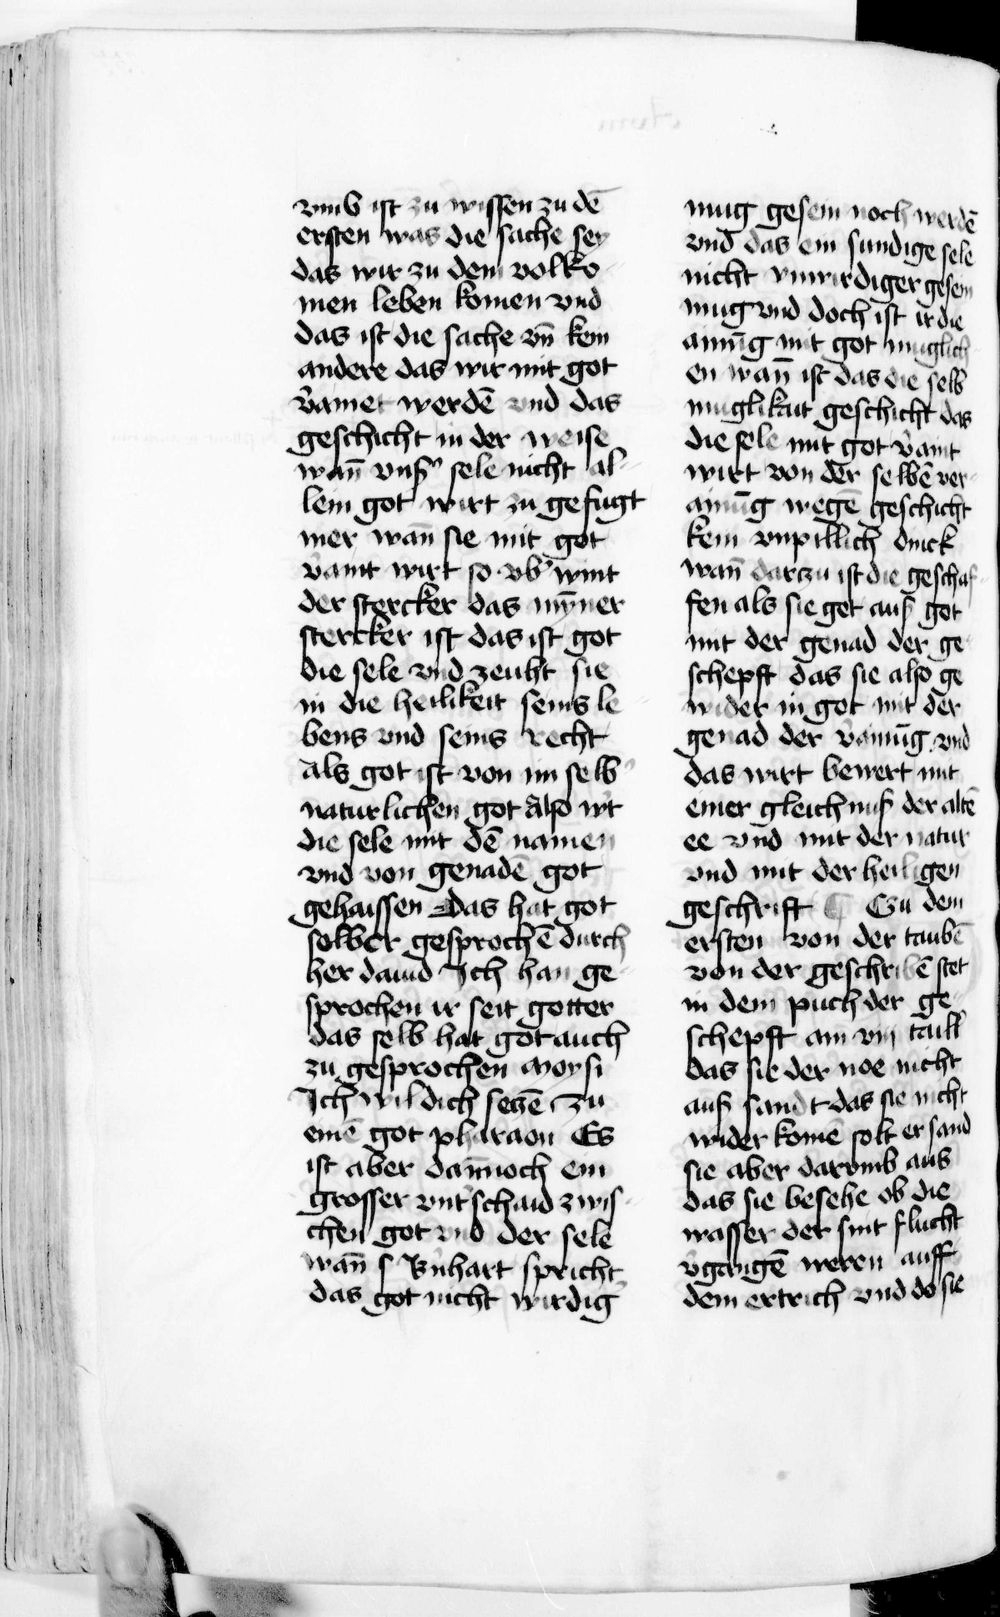 vmb ist zu wissen zu dē
ersten was die sache sey
das wir zu dem volko-
men leben komen vnd
das ist die sache vn̄ kein
andere das wir mit got
v̉ainet werdē vnd das
geschicht in der weise
wan̄ vnsˀ sele nicht al-
lein got wirt zu gefugt
mer wan̄ sie mit got
v̉aint wirt so vbˀ wint
der stercker das myn̄er
stercker ist das ist got
die sele vnd zeuht sie
in die heilikeit seins le-
bens vnd seins recht
Als got ist von im selbˀ
naturlichen got Also wˀt
die sele mit dē namen
vnd von genadē got
gehaissen Das hat got
selber gesprochē durch
her dauid Ich han ge-
sprochen ir seit gotter
das selb hat got auch
zu gesprochen moysi
Ich wil dich seczē zu
einē got pharaon Es
ist aber dan̄noch ein
grosser vntˀschaid zwis-
chen got vnd der sele
wan̄ s Bˀnhart spricht
das got nicht wirdigˀ
mug gesein noch werdē
vnd das ein sundige sele
nicht vnwirdiger gesein
mug vnd doch ist ir die
ainūg mit got muglich
en wan̄ ist das die selb
muglikait geschicht das
die sele mit got v̉aint
wirt von der selbē ver-
ainūg wegē geschicht
kein vnpillich dinck
wan̄ darzu ist die geschaf-
fen als sie get auß got
mit der genad der ge-
schepft das sie also ge
wider in got mit der
genad der v̉ainūg vnd
das wirt bewert mit
einer gleichnuß der altē
ee vnd mit der natur
vnd mit der heiligen
geschrift ¶ Czu dem
ersten von der taubē
von der geschribē stet
in dem puch der ge-
schepft am viij taill
das sie der noe nicht
auß sandt das sie nicht
wider komē solt er sand
sie aber darvmb aus
das sie besehe ob die
wasser der sint flucht
v̉gangē weren auff
dem ertrich vnd do sie